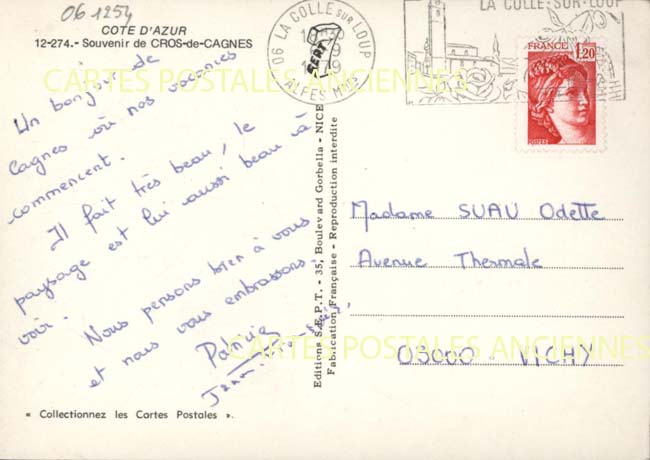 06 1254
COTE D'AZUR
12-274.- Souvenir de CROS-de-CAGNES
06 LA COLLE SUR LOUP
ALPES MMES
LA COLLE-SUR-LOUP
FRANCE
1,20
POSTES
Un bonjour de
Cagnes où nos vacances
commencent.
Il fait très beau, le
paysage est lui aussi beau à
voir.
Nous pensons bien à vous
et nous vous embrassons.
Patrick
Editions S.E.P.T. - 35, Boulevard Gorbella - NICE
Fabrication Française - Reproduction interdite
Madame SUAU Odette
Avenue Thermale
03000 VICHY
« Collectionnez les Cartes Postales ».
CARTES POSTALES ANCIENNES
CARTES POSTALES ANCIENNES